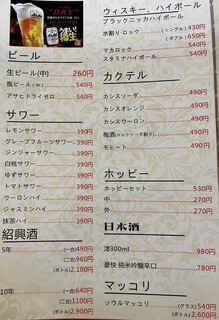 "DRY"
うまい!
樽生
ビール
生ビール(中) 260円
瓶ビール(中) 540円
アサヒドライゼロ 540円
サワー
レモンサワー 390円
グレープフルーツサワー 390円
ジンジャーサワー 390円
白桃サワー 390円
ゆずサワー 390円
トマトサワー 390円
ウーロンハイ 390円
ジャスミンハイ 390円
抹茶ハイ 390円
紹興酒
5年 (一合)490円
(二合)960円
(ボトル)2,100円
10年 (一合)640円
(二合)1100円
(ボトル)2,600円
ウィスキー、ハイボール
ブラックニッカハイボール
水割り・ロック (シングル)430円
(ダブル)650円
マカロック 540円
スタミナハイボール 540円
カクテル
カシスソーダ 490円
カシスオレンジ 490円
カシスウーロン 490円
梅酒(ロック・ソーダ割り) 490円
モヒート 490円
ホッピー
ホッピーセット 530円
中 270円
外 270円
日本酒
澪300ml 980円
豪快 純米吟醸辛口 780円
マッコリ
ソウルマッコリ (グラス)540円
(ボトル)2,900円